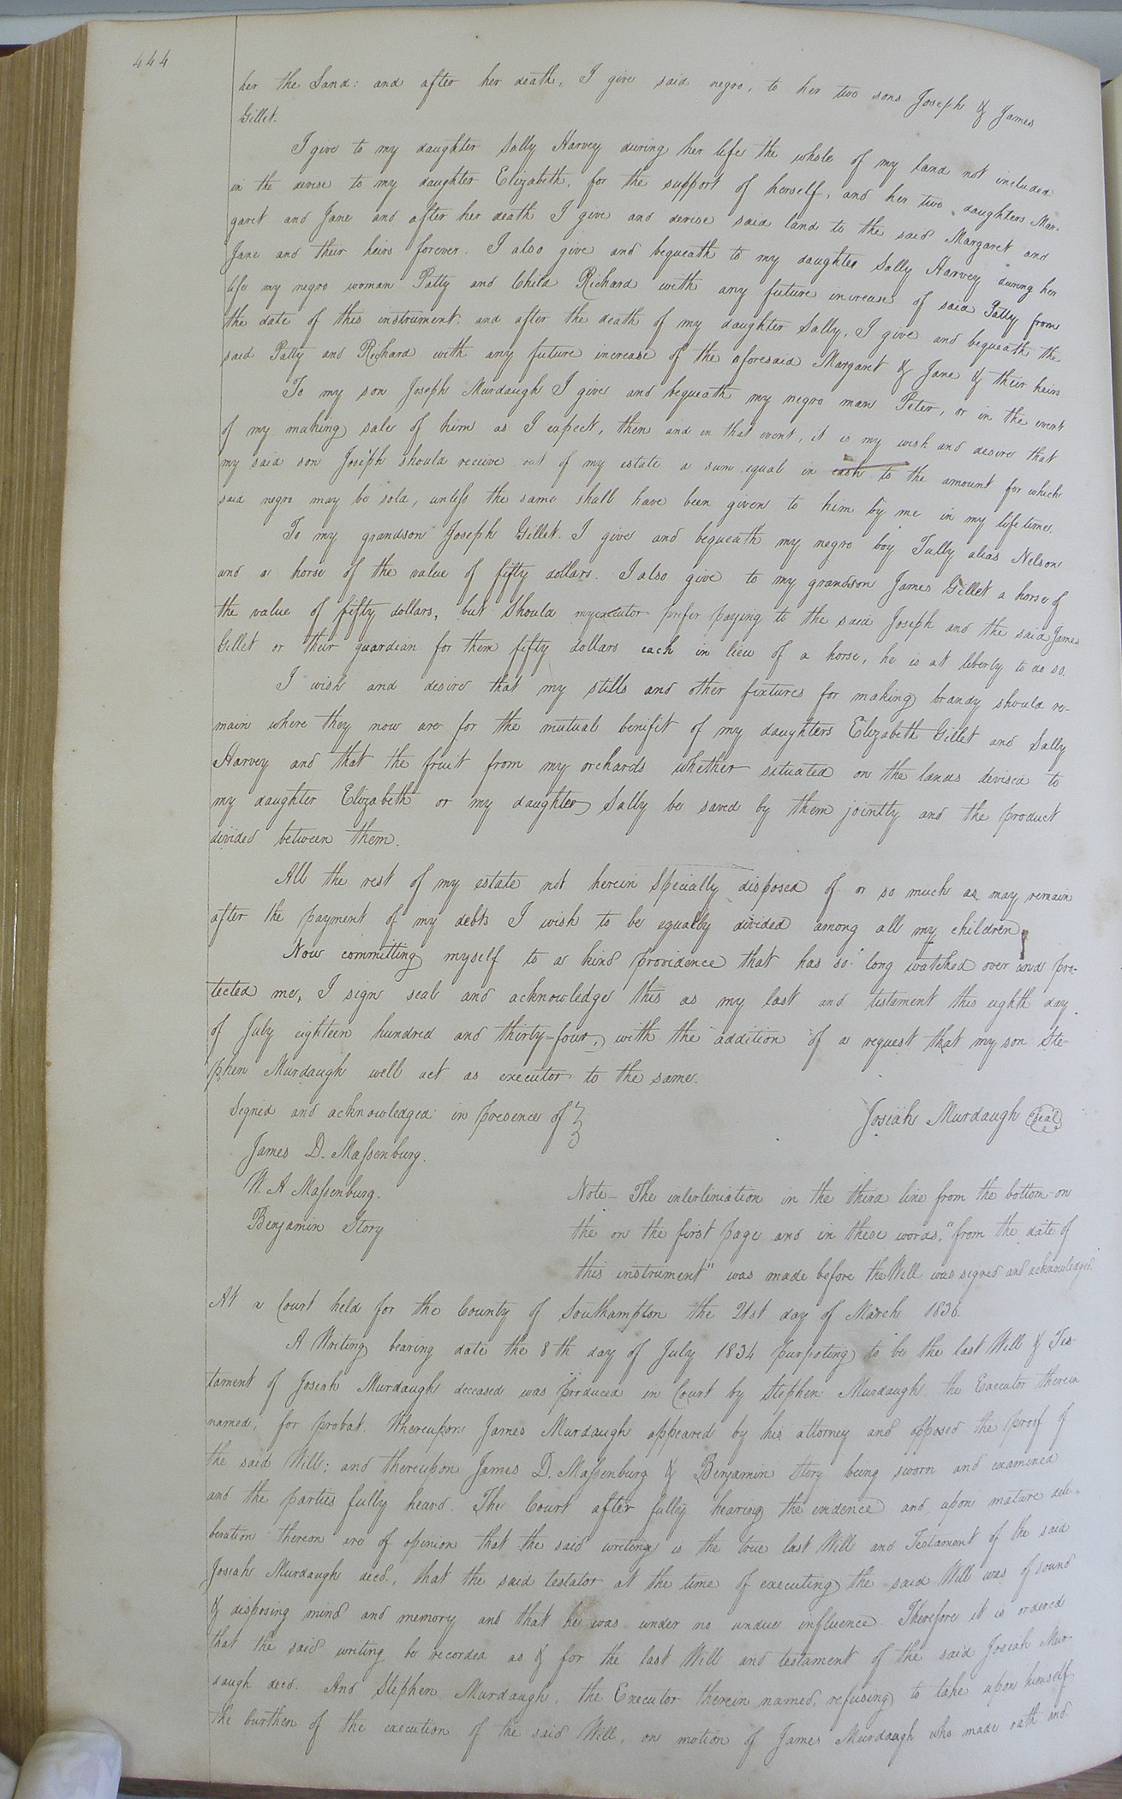 444
her the Land: and after her death, I give said negro, to her two sons Joseph & James
Gillet.
I give to my daughter Sally Harvey during her life the whole of my land not included
in the devise to my daughter Elizabeth, for the support of herself, and her two daughters Mar-
garet and Jane and after her death I give and devise said land to the said Margaret and
Jane and their heirs forever. I also give and bequeath to my daughter Sally Harvey during her
life my negro woman Patty and Child Richard with any future increase of said Patty from
the date of this instrument: and after the death of my daughter Sally, I give and bequeath the
said Patty and Richard with any future increase of the aforesaid Margaret & Jane & their heirs
To my son Joseph Murdaugh I give and bequeath my negro man Peter, or in the event
of my making sale of him as I expect, then and in that event, it is my wish and desire that
my said son Joseph should receive out of my estate a sum equal in cash to the amount for which
said negro may be sold, unless the same shall have been given to him by me in my lifetime.
To my grandson Joseph Gillet. I give and bequeath my negro boy Tully alias Nelson
and a horse of the value of fifty dollars. I also give to my grandson James Gillet a horse of
the value of fifty dollars, but should my executor prefer paying to the said Joseph and the said James
Gillet or their guardian for them fifty dollars each in lieu of a horse, he is at liberty to do so.
I wish and desire that my stills and other fixtures for making brandy should re-
main where they now are for the mutual benifit of my daughters Elizabeth Gillet and Sally
Harvey and that the fruit from my orchards whether situated on the lands devised to
my daughter Elizabeth or my daughter Sally be saved by them jointly and the product
divided between them.
All the rest of my estate not herein specially disposed of or so much as may remain
after the payment of my debts I wish to be equally divided among all my children.
Now committing myself to a kind providence that has so long watched over and pro-
tected me, I sign seal and acknowledge this as my last and testament this eighth day
of July eighteen hundred and thirty-four, with the addition of a request that my son Ste-
phen Murdaugh will act as executor to the same.
Signed and acknowledged in presence of
Josiah Murdaugh Seal
James D. Massenburg.
W. A Massenburg.
Benjamin Story
Note- The interliniation in the third line from the bottom on
the on the first page and in these words, "from the date of
this instrument" was made before the Will was signed and acknowledged.
At a Court held for the County of Southampton the 21st day of March 1836.
A Writing bearing date the 8th day of July 1834 purpoting to be the last Will & Tes-
tament of Josiah Murdaugh deceased was produced in Court by Stephen Murdaugh the Executor therein
named, for probat. Whereupon James Murdaugh appeared by his attorney and opposed the proof of
the said Will; and thereupon James D. Massenburg & Benjamin Story being sworn and examined
and the parties fully heard. The Court after fully hearing the evidence and upon mature deli-
beration thereon are of opinion that the said writing is the true last Will and Testament of the said
Josiah Murdaugh decd., that the said testator at the time of executing the said Will was of sound
& disposing mind and memory and that he was under no undue influence. Therefore it is ordered
that the said writing be recorded as & for the last Will and testament of the said Josiah Mur-
daugh decd. And Stephen Murdaugh, the Executor therein named, refusing to take upon himself
the burthen of the execution of the said Will, on motion of James Murdaugh who made oath and